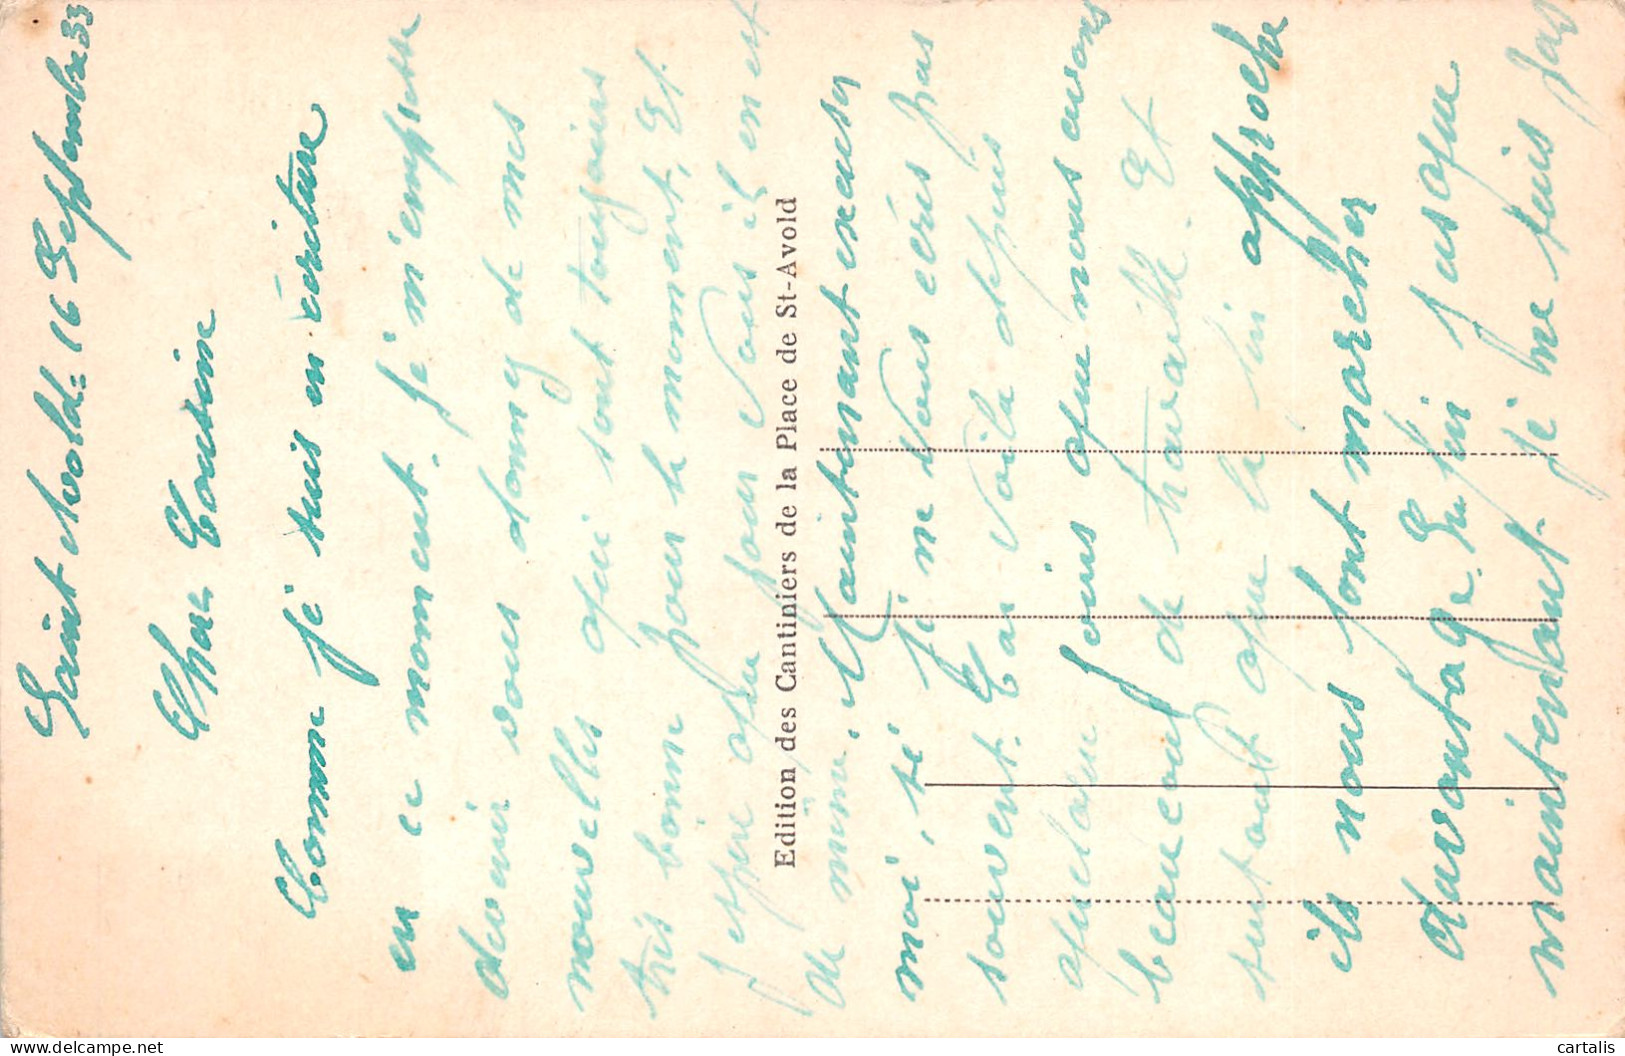 Saint Avold= 16 Septembre 33
Cher Cousine
Comme je suis en écriture
en ce moment. Je m'empresse
devenir vous donnez de mes
nouvelles qui sont toujours
très bonne pour le moment. Et
J'espère que pour Vous il en est
de même. Maintenant excuser
moi, si je ne Vous ecris pas
souvent. Car Voila depuis
quelque jours que nous avons
beaucoup de travaille. Et
surtout que la fin approche
ils nous font marcher
davantage. Enfin jusque
maintenant je ne suis pas
Edition des Cantiniers de la Place de St-Avold
cartalis